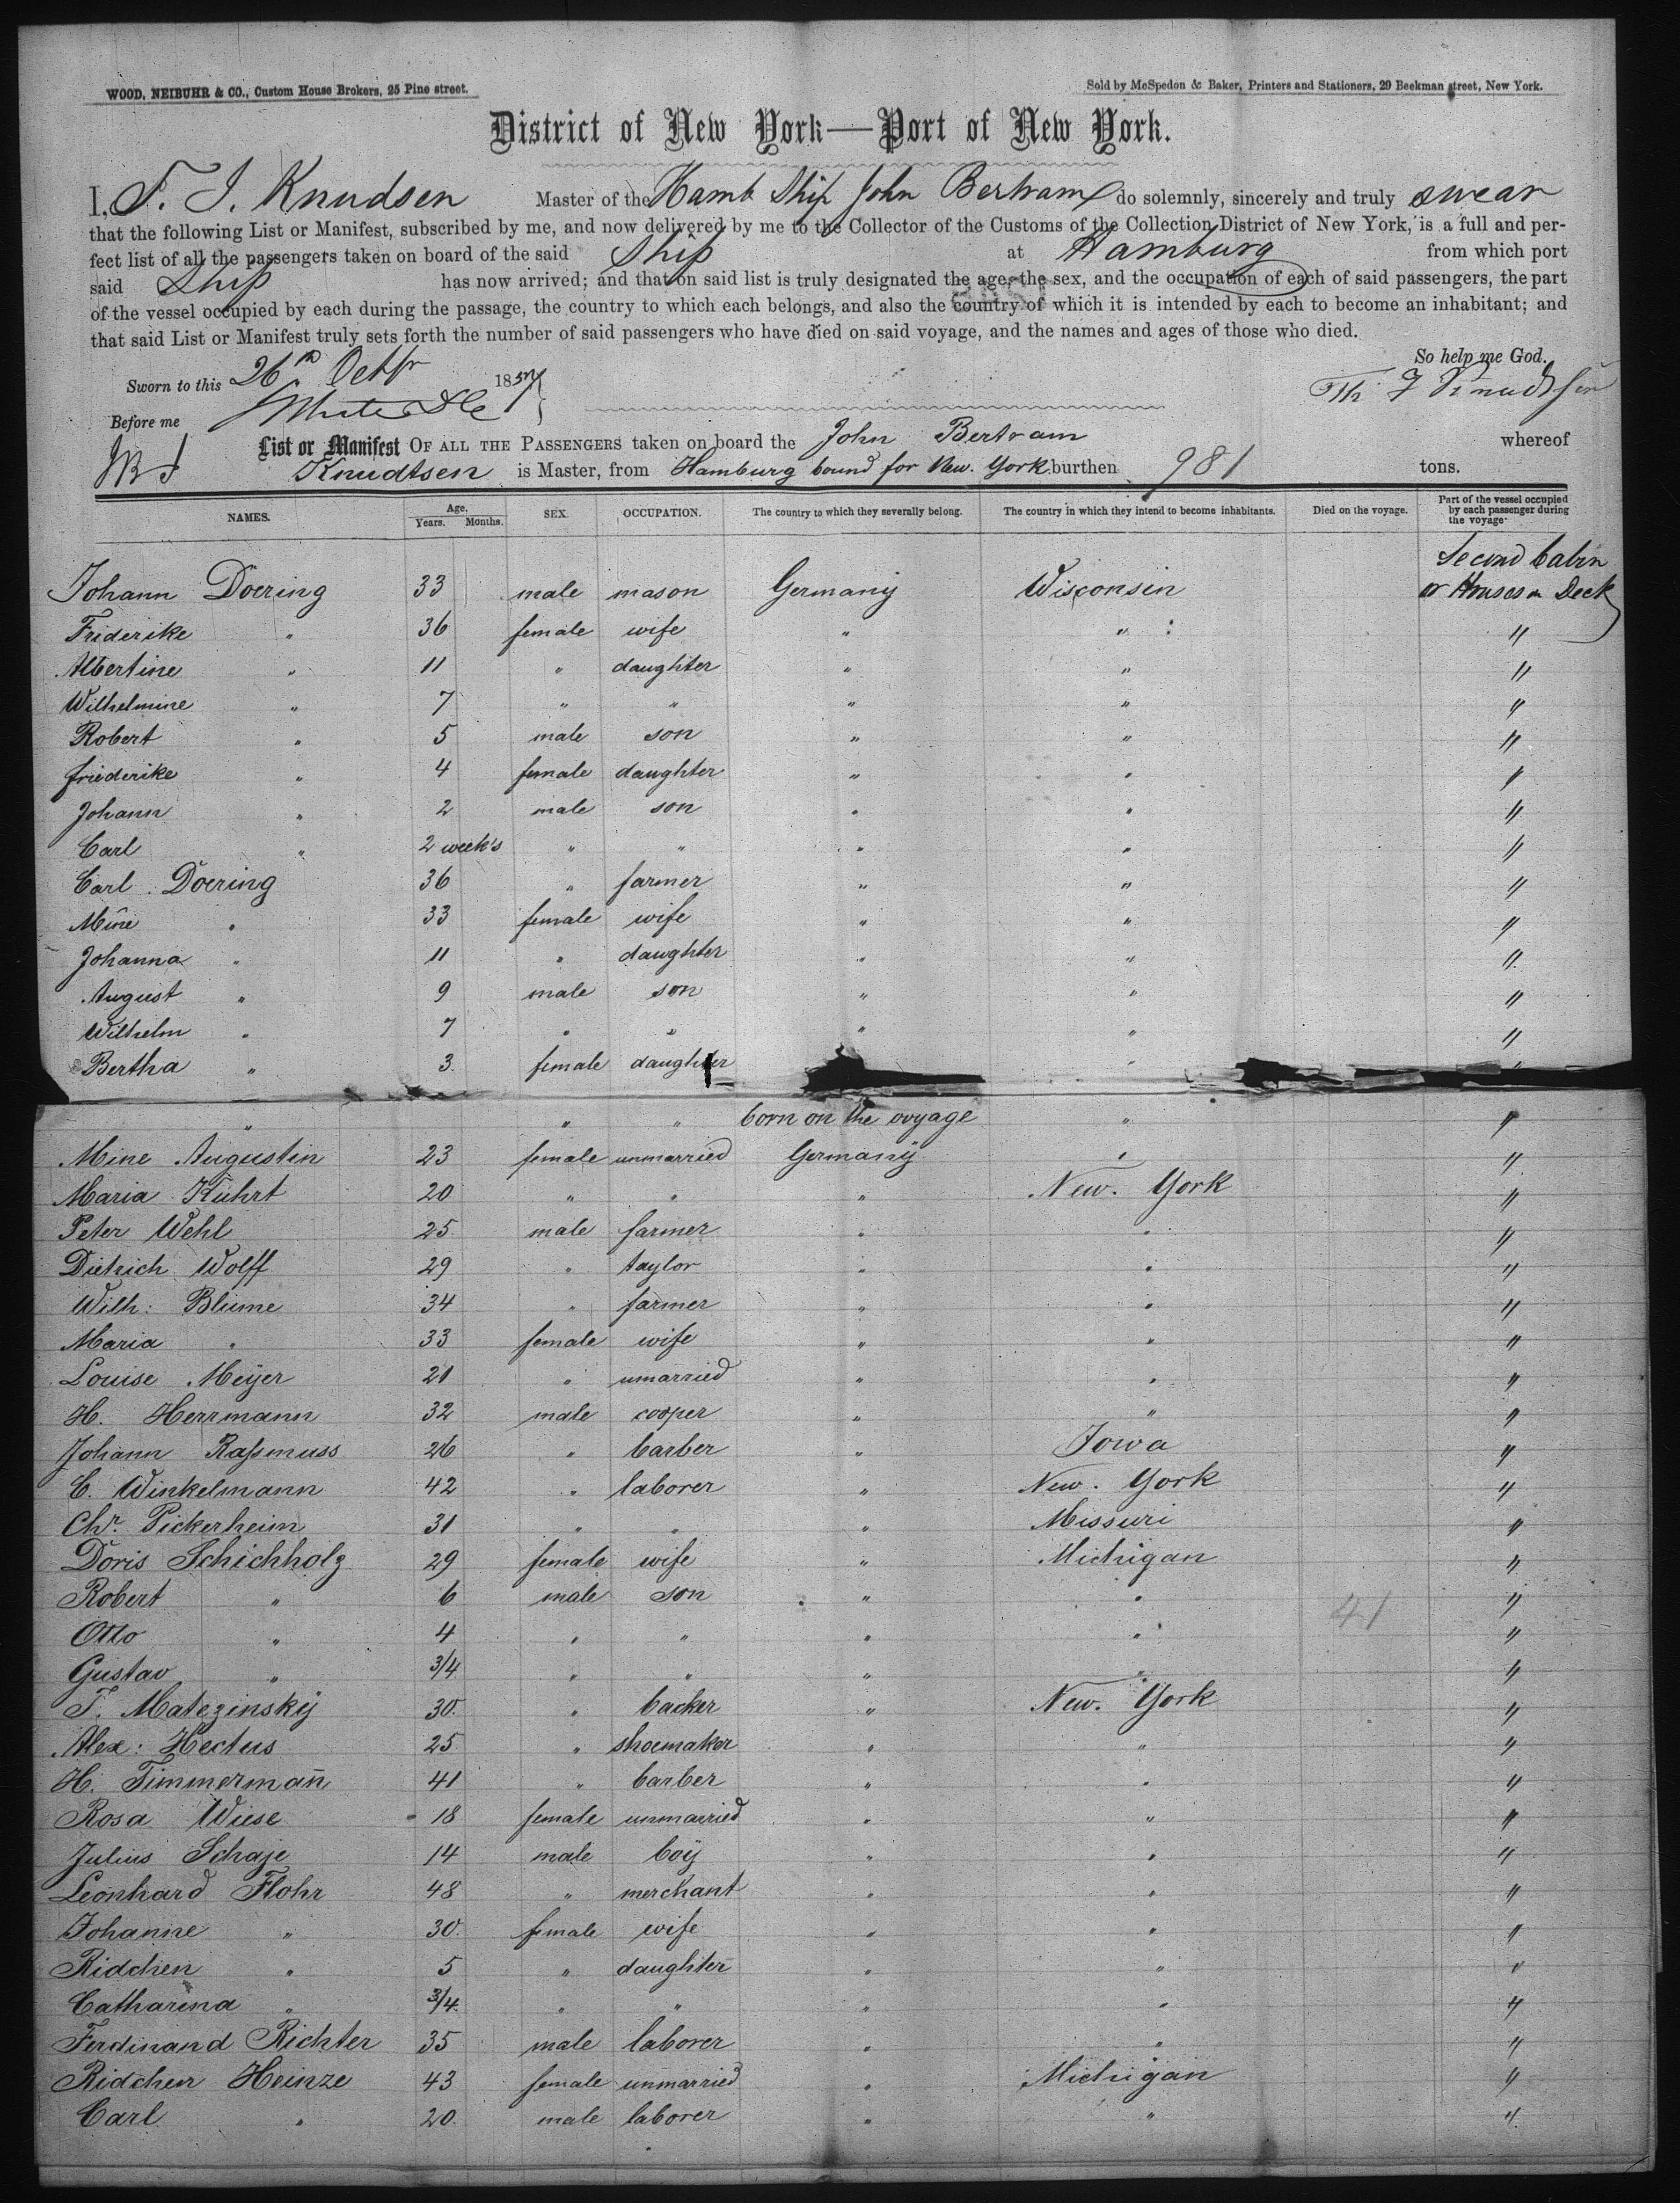 WOOD, NEIBUHR & CO., Custom House Brokers, 25 Pine street.
Sold by McSpedon & Baker, Printers and Stationers, 29 Beekman street, New York.
District of New York—Port of New York.
I, F. J. Knudsen Master of the Hamb Ship John Bertram do solemnly, sincerely and truly swear
that the following List or Manifest, subscribed by me, and now delivered by me to the Collector of the Customs of the Collection District of New York, is a full and per-
fect list of all the passengers taken on board of the said Ship at Hamburg from which port
said Ship has now arrived; and that on said list is truly designated the age, the sex, and the occupation of each of said passengers, the part
of the vessel occupied by each during the passage, the country to which each belongs, and also the country of which it is intended by each to become an inhabitant; and
that said List or Manifest truly sets forth the number of said passengers who have died on said voyage, and the names and ages of those who died.
So help me God.
Sworn to this 26th Octbr 1857
Before me
List or Manifest OF ALL THE PASSENGERS taken on board the John Bertram whereof
Knudtsen is Master, from Hamburg bound for New. York burthen 981 tons.
NAMES. Age. Years. Months. SEX. OCCUPATION. The country to which they severally belong. The country in which they intend to become inhabitants. Died on the voyage. Part of the vessel occupied by each passenger during the voyage.
Second Cabin
Johann Doering 33 male mason Germany Wisconsin or Houses on Deck
Friderike " 36 female wife " " "
Albertine " 11 " daughter " " "
Wilhelmine " 7 " " " " "
Robert " 5 male son " " "
friederike " 4 female daughter " " "
Johann " 2 male son " " "
Carl " 2 week's " " " " "
Carl Doering 36 " farmer " " "
Mine " 33 female wife " " "
Johanna " 11 " daughter " " "
August " 9 male son " " "
Wilhelm " 7 " " " " "
Bertha " 3 female daughter " "
" " " born on the voyage " "
Mine Augustin 23 female unmarried Germany " "
Maria Kuhrt 20 " " " New. York "
Peter Wehl 25 male farmer " " "
Dietrich Wolff 29 " taylor " " "
Wilh: Blume 34 " farmer " " "
Maria " 33 female wife " " "
Louise Meyer 21 " umarried " " "
H. Herrmann 32 male cooper " " "
Johann Raßmuss 26 " barber " Iowa "
C. Winkelmann 42 " laborer " New. York "
Chr. Pickerheim 31 " " " Missuri "
Doris Schichholz 29 female wife " Michigan "
Robert " 6 male son " " 41 "
Otto " 4 " " " " "
Gustav " 3/4 " " " " "
T. Matezinsky 30 " backer " New. York "
Alex: Hectus 25 " shoemaker " " "
H. Timmermañ 41 " barber " " "
Rosa Wiese 18 female unmarried " " "
Julius Schaje 14 male boy " " "
Leonhard Flohr 48 " merchant " " "
Johanne " 30 female wife " " "
Ridchen " 5 " daughter " " "
Catharina " 3/4 " " " " "
Ferdinand Richter 35 male laborer " " "
Ridchen Heinze 43 female unmarried " Michigan "
Carl " 20 male laborer " " "